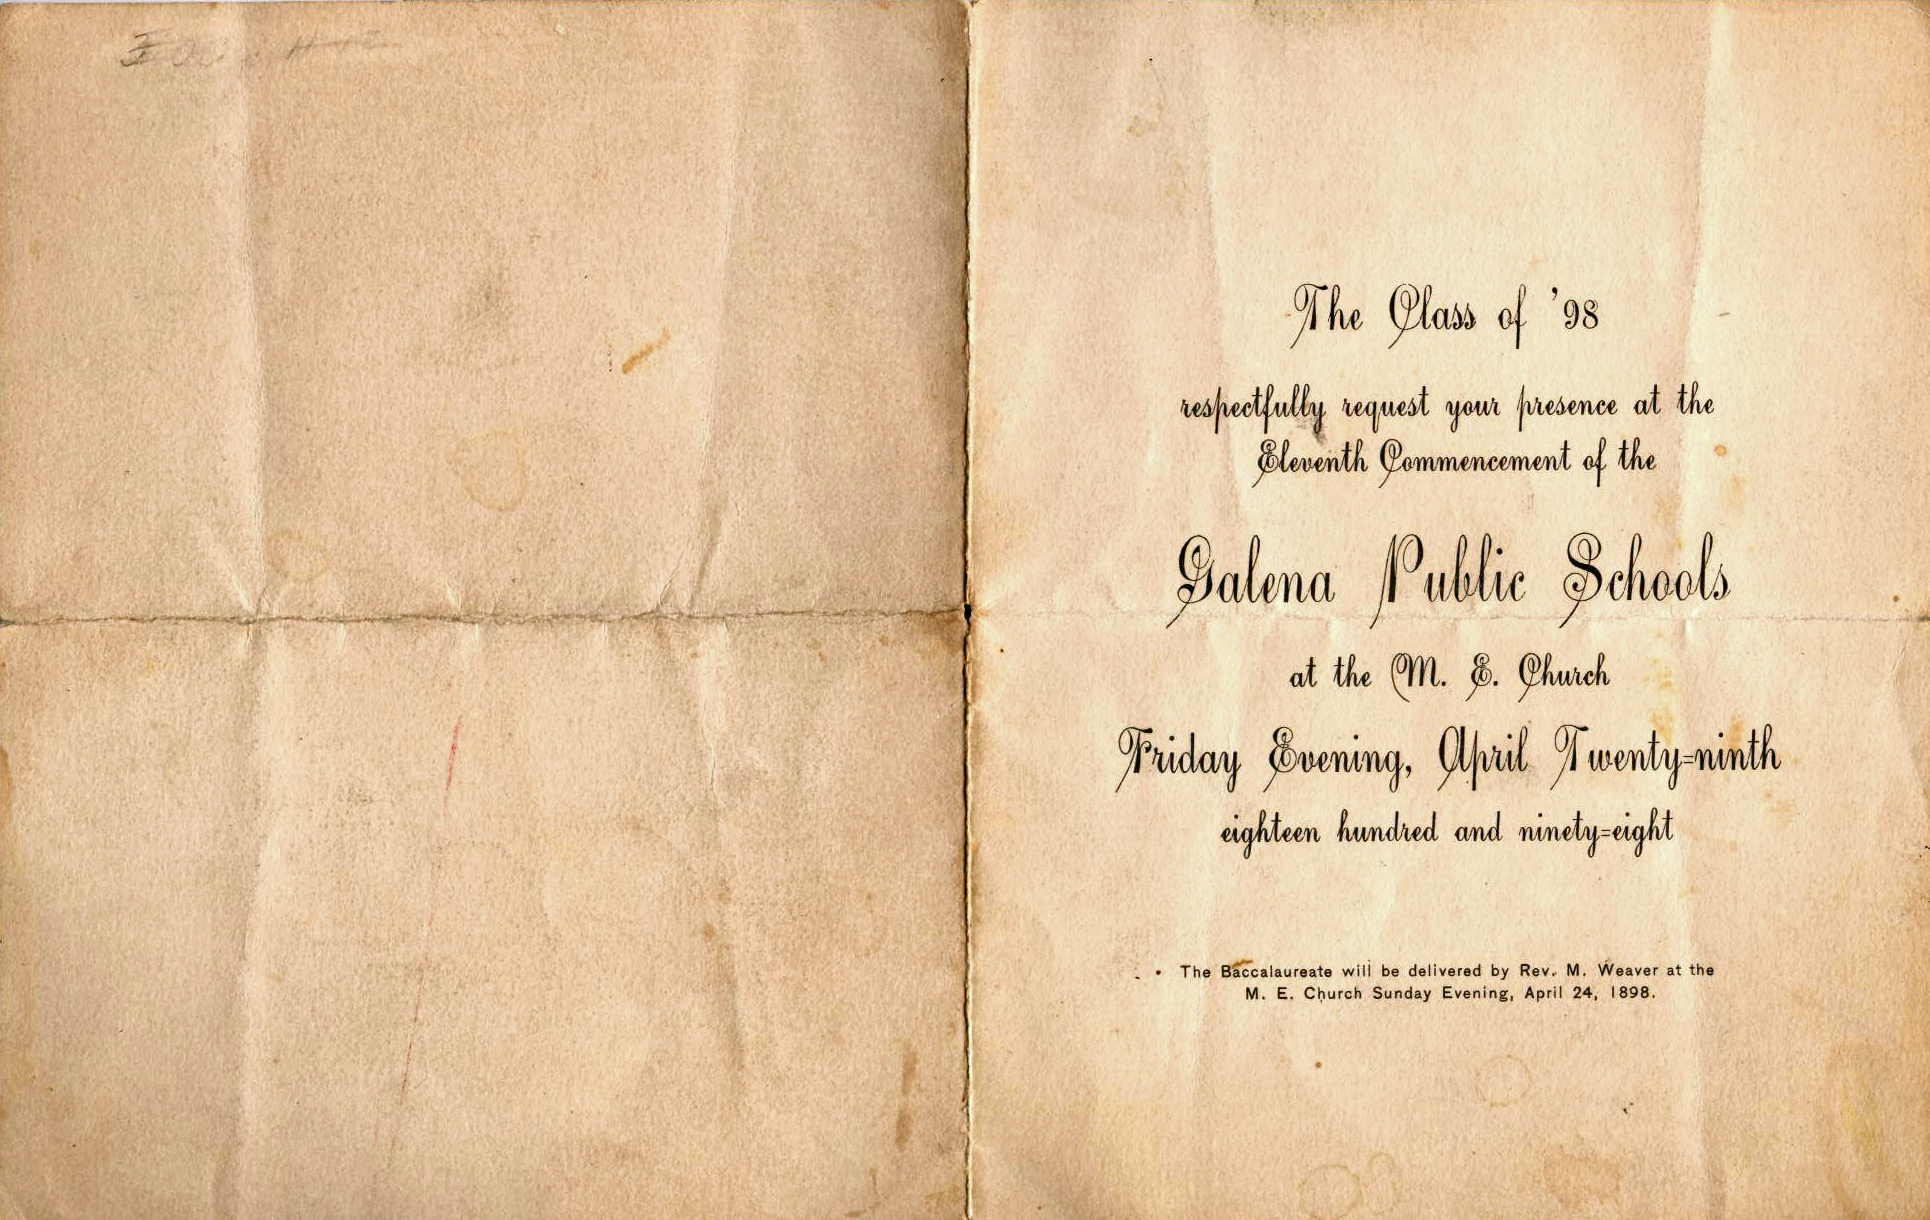 The Class of '98
respectfully request your presence at the
Eleventh Commencement of the
Galena Public Schools
at the M. E. Church
Friday Evening, April Twenty=ninth
eighteen hundred and ninety=eight
The Baccalaureate will be delivered by Rev. M. Weaver at the
M. E. Church Sunday Evening, April 24, 1898.